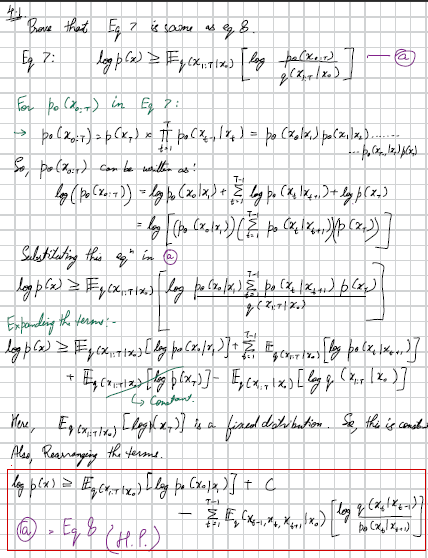 4.1
Prove that Eq 7 is same as eq 8.
Eq 7: log p(x) ≥ 𝔼_{q(x_{1:T}|x_0)} [ log p_θ(x_{0:T}) / q(x_{1:T}|x_0) ] — ⓐ
For p_θ(x_{0:T}) in Eq 7:
→ p_θ(x_{0:T}) = p(x_T) × ∏_{t=1}^{T} p_θ(x_{t-1}|x_t) = p_θ(x_0|x_1) p_θ(x_1|x_2) ........
... p_θ(x_{T-1}|x_T) p(x_T)
So, p_θ(x_{0:T}) can be written as:
log(p_θ(x_{0:T})) = log p_θ(x_0|x_1) + Σ_{t=1}^{T-1} log p_θ(x_t|x_{t+1}) + log p(x_T)
= log [ (p_θ(x_0|x_1)) ( Σ_{t=1}^{T-1} p_θ(x_t|x_{t+1}) ) (p(x_T)) ]
Substituting this eqⁿ in ⓐ
log p(x) ≥ 𝔼_{q(x_{1:T}|x_0)} [ log p_θ(x_0|x_1) Σ_{t=1}^{T-1} p_θ(x_t|x_{t+1}) p(x_T) / q(x_{1:T}|x_0) ]
Expanding the terms:-
log p(x) ≥ 𝔼_{q(x_{1:T}|x_0)} [log p_θ(x_0|x_1)] + Σ_{t=1}^{T-1} 𝔼_{q(x_{1:T}|x_0)} [log p_θ(x_t|x_{t+1})]
+ 𝔼_{q(x_{1:T}|x_0)} [log p(x_T)] - 𝔼_{q(x_{1:T}|x_0)} [log q(x_{1:T}|x_0)]
↳ Constant.
Here, 𝔼_{q(x_{1:T}|x_0)} [log p(x_T)] is a fixed distribution. So, this is const
Also, Rearranging the terms.
log p(x) ≥ 𝔼_{q(x_{1:T}|x_0)} [log p_θ(x_0|x_1)] + C
- Σ_{t=1}^{T-1} 𝔼_{q(x_{t-1}, x_t, x_{t+1}|x_0)} [ log q(x_t|x_{t-1}) / p_θ(x_t|x_{t+1}) ]
ⓐ = Eq 8 (H.P.)